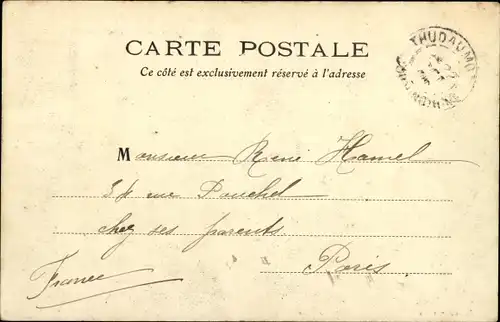 CARTE POSTALE
Ce côté est exclusivement réservé à l'adresse
THUDAUMOT
Monsieur René Hamel
rue Pouchet
chez ses parents
Paris
France